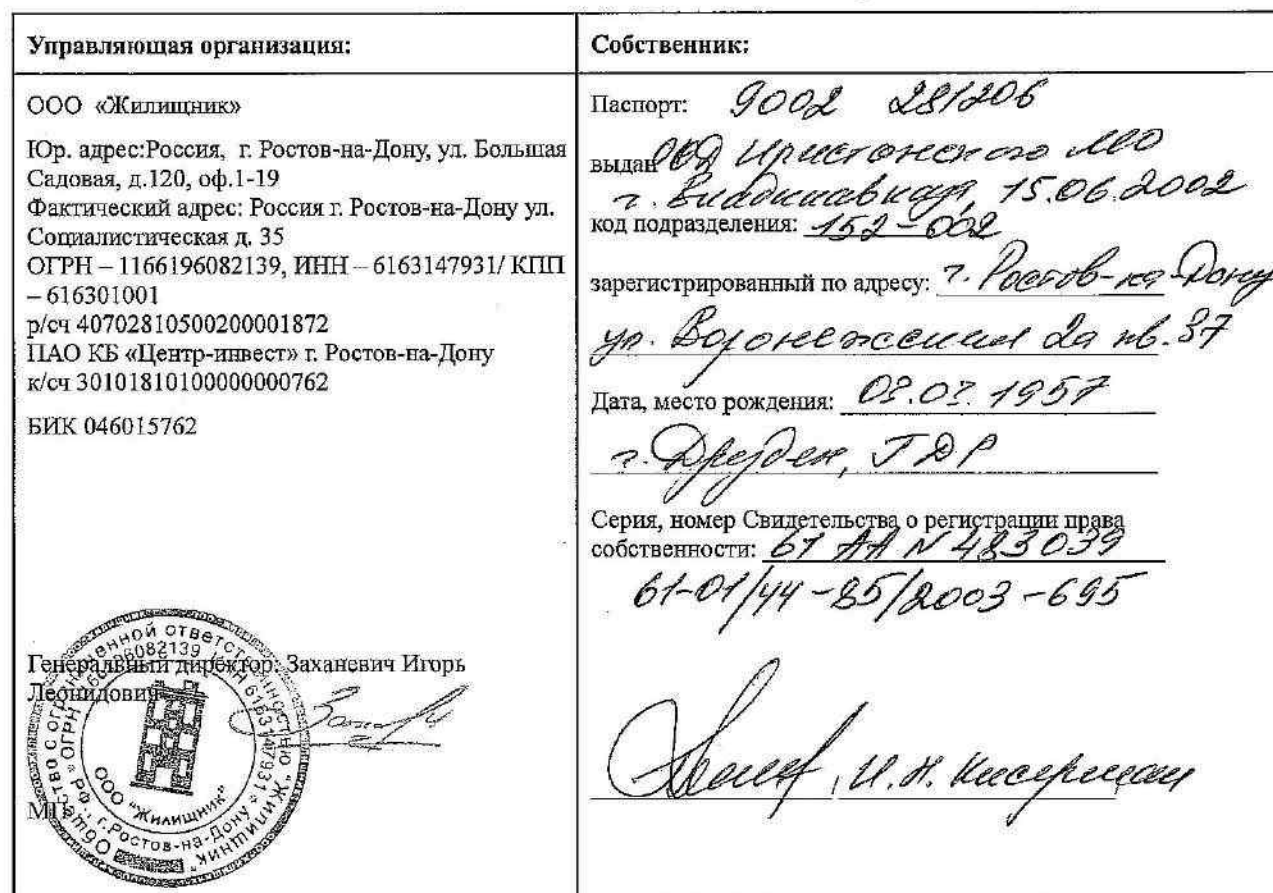 Управляющая организация:
ООО «Жилищник»
Юр. адрес:Россия, г. Ростов-на-Дону, ул. Большая
Садовая, д.120, оф.1-19
Фактический адрес: Россия г. Ростов-на-Дону ул.
Социалистическая д. 35
ОГРН – 1166196082139, ИНН – 6163147931/ КПП
– 616301001
р/сч 40702810500200001872
ПАО КБ «Центр-инвест» г. Ростов-на-Дону
к/сч 30101810100000000762
БИК 046015762
Генеральный директор: Заханевич Игорь
Леонидович
МП
Общество с ограниченной ответственностью "Жилищник"
ОГРН 1166196082139 ИНН 6163147931 * РФ., г.Ростов-на-Дону
ООО "Жилищник"
Собственник:
Паспорт: 9002 281206
выдан Иристонского МО
г. Владикавказ, 15.06.2002
код подразделения: 152-002
зарегистрированный по адресу: г. Ростов-на-Дону
ул. 2а кв. 37
Дата, место рождения: 1957
г. Дрезден, ГДР
Серия, номер Свидетельства о регистрации права
собственности: 61 АА N 483039
61-01/44-85/2003-695
И.Н.